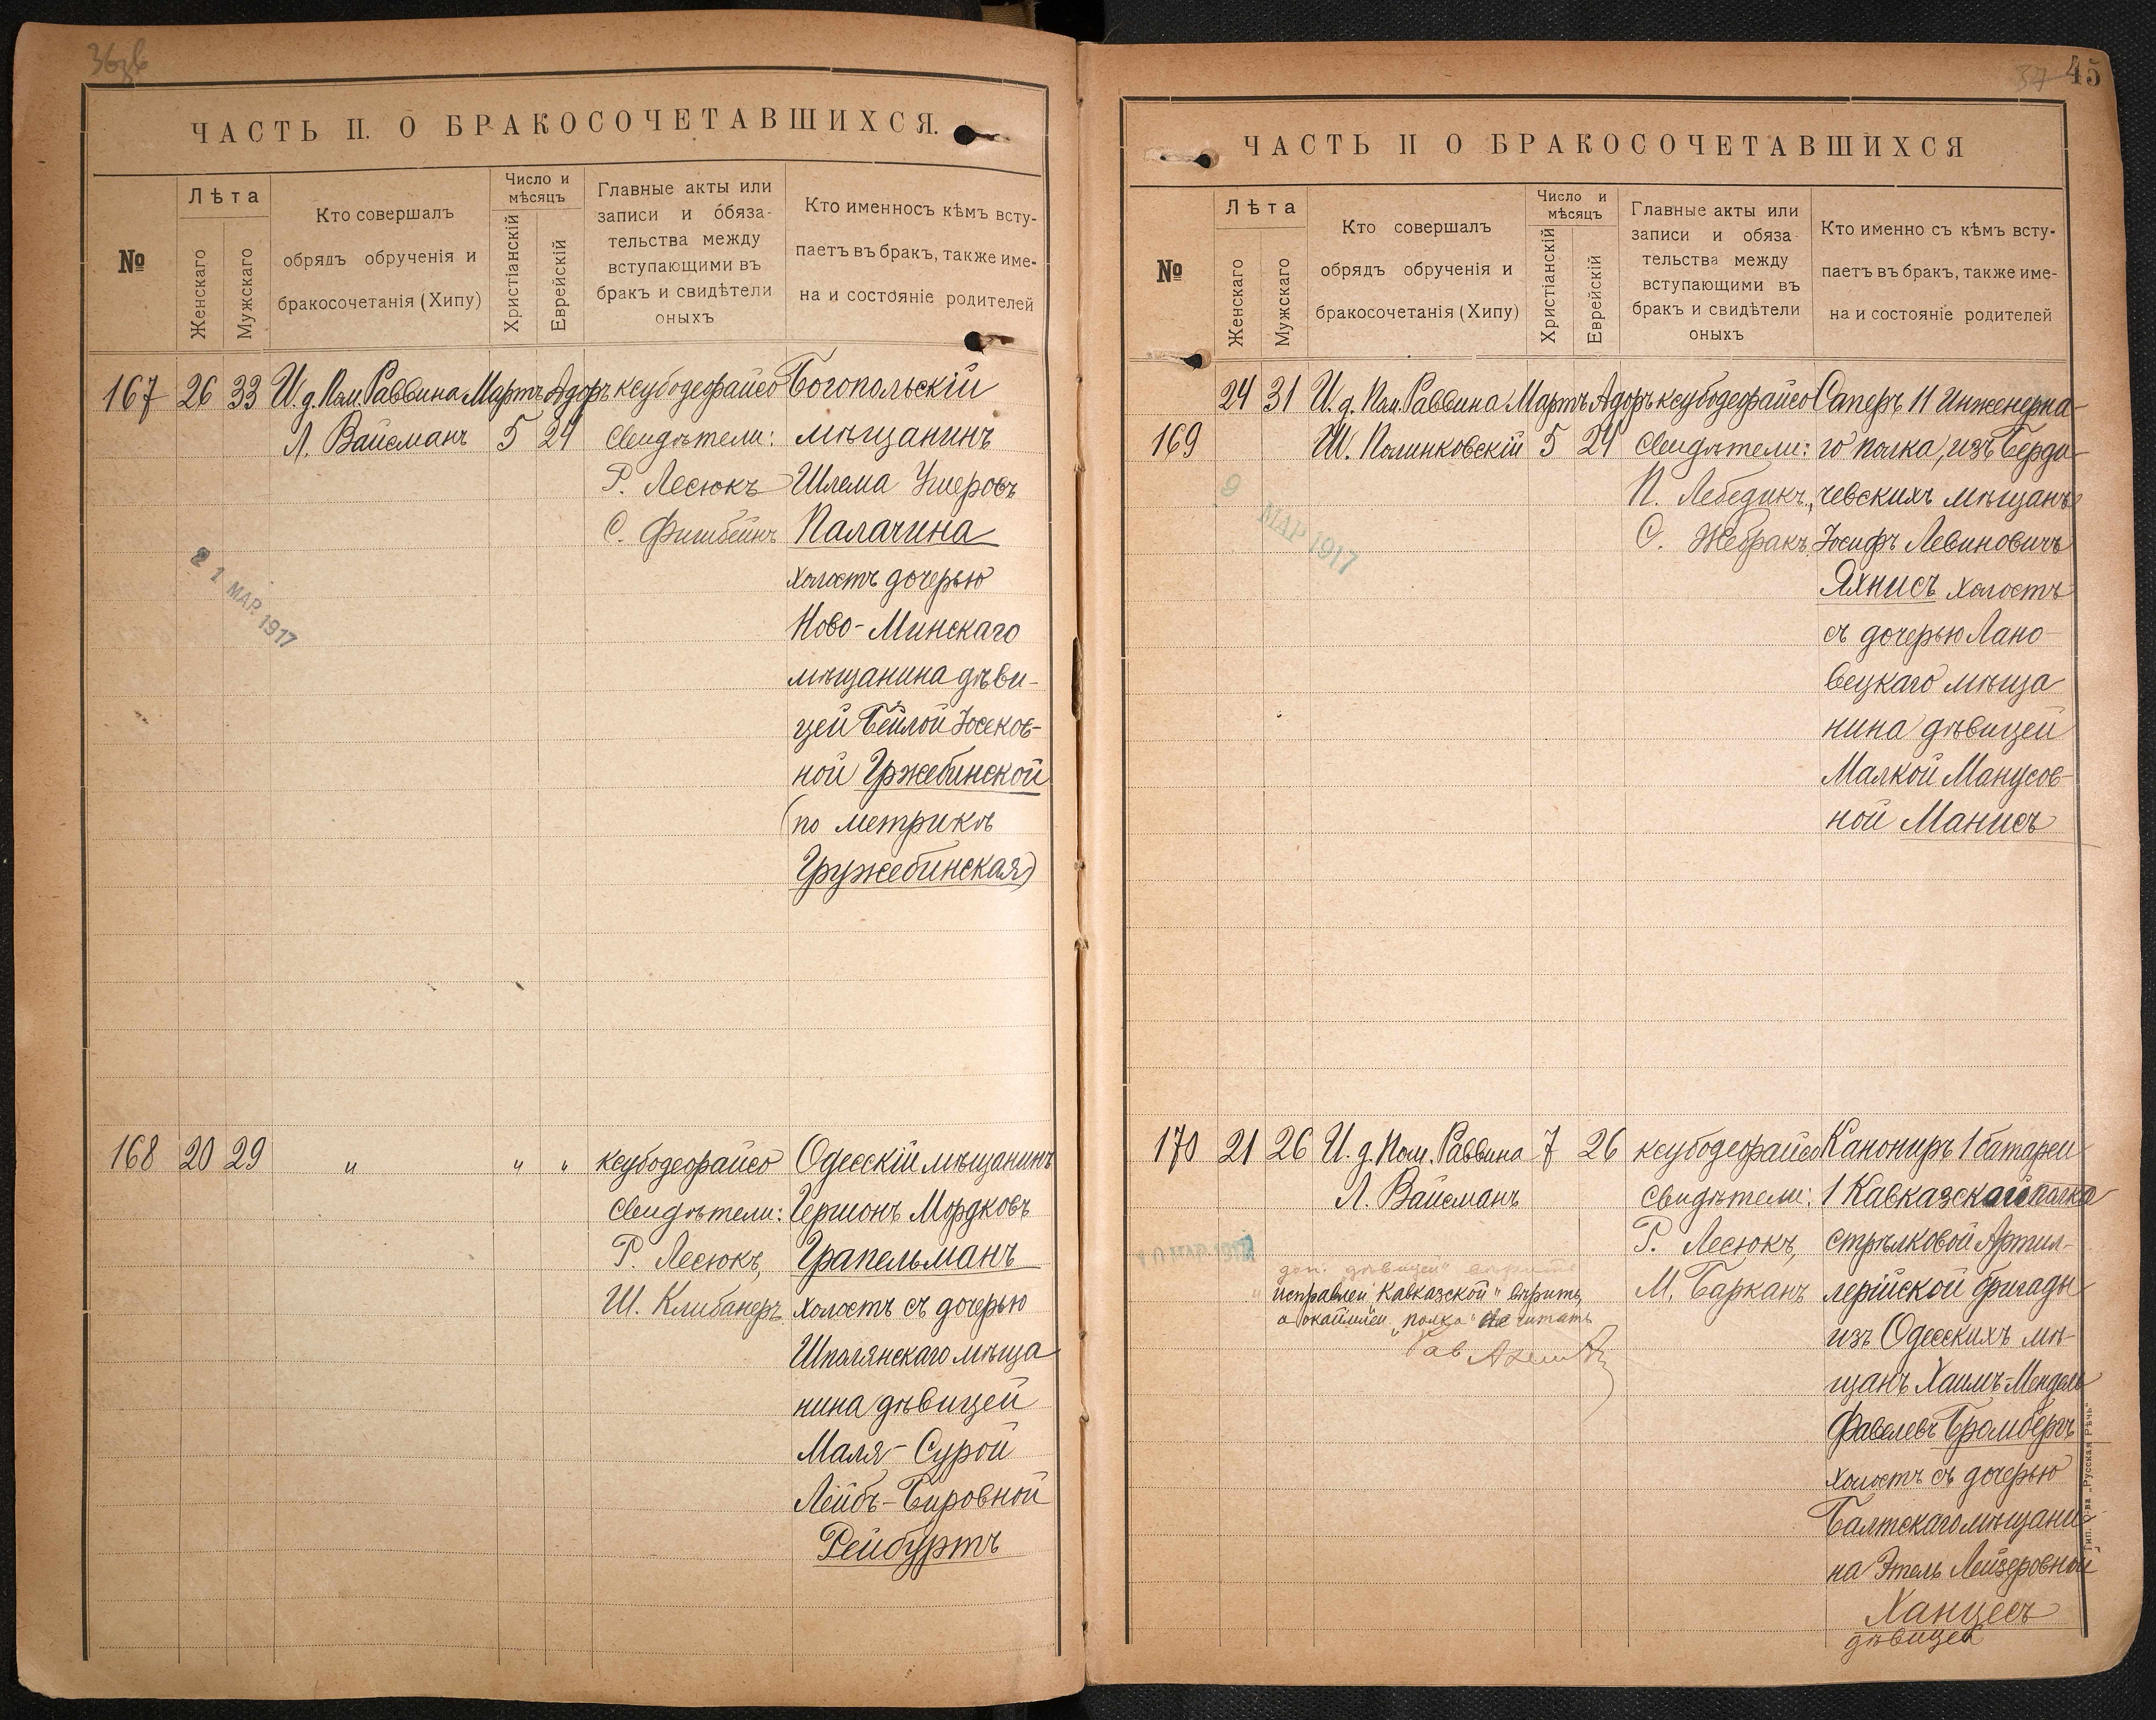 36об
ЧАСТЬ II. О БРАКОСОЧЕТАВШИХСЯ.
№
Лѣта
Женскаго
Мужскаго
Кто совершалъ
обрядъ обрученія и
бракосочетанія (Хипу)
Число и
мѣсяцъ
Христіанскій
Еврейскій
Главные акты или
записи и обяза-
тельства между
вступающими въ
бракъ и свидѣтели
оныхъ
Кто именносъ кѣмъ всту-
паетъ въ бракъ, также име-
на и состояніе родителей
167 26 33 И.д. Пом. Раввина Мартъ Адоръ ксубодеорайсо Богопольскій
Л. Вайсманъ 5 24 Свидѣтели: мѣщанинъ
Р. Лесюкъ Шлема Ушеровъ
С. Фишбейнъ Палачина
холостъ дочерью
Ново-Минскаго
мѣщанина дѣви-
цей Бейлой Юсеков-
ной Гржебинской
(по метрикѣ
Гружебинская)
21 МАР. 1917
168 20 29 " " " ксубодеорайсо Одесскій мѣщанинъ
Свидѣтели: Гершонъ Мордковъ
Р. Лесюкъ, Грапельманъ
Ш. Клибанеръ холостъ съ дочерью
Шполянскаго мѣща
нина дѣвицей
Маля-Сурой
Лейбъ-Бировной
Рейбуртъ
37 45
ЧАСТЬ II О БРАКОСОЧЕТАВШИХСЯ
№
Лѣта
Женскаго
Мужскаго
Кто совершалъ
обрядъ обрученія и
бракосочетанія (Хипу)
Число и
мѣсяцъ
Христіанскій
Еврейскій
Главные акты или
записи и обяза-
тельства между
вступающими въ
бракъ и свидѣтели
оныхъ
Кто именно съ кѣмъ всту-
паетъ въ бракъ, также име-
на и состояніе родителей
24 31 И.д. Пом. Раввина Мартъ Адоръ ксубодеорайсо Саперъ 11 Инженерна-
169 Ш. Полинковскій 5 24 Свидѣтели: го полка, изъ Берди-
П. Лебедикъ, чевскихъ мѣщанъ
С. Жебракъ Іосифъ Левиновичъ
Яхнисъ холостъ
съ дочерью Лано-
вецкаго мѣща
нина дѣвицей
Малкой Манусов-
ной Манисъ
9 МАР 1917
170 21 26 И.д. Пом. Раввина 7 26 ксубодеорайсо Канониръ 1 батареи
Л. Вайсманъ Свидѣтели: 1 Кавказской полка
Р. Лесюкъ, стрѣлковой Артил-
М. Барканъ лерійской бригады
изъ Одесскихъ мѣ-
щанъ Хаимъ-Мендель
Фавелевъ Бромбергъ
холостъ съ дочерью
Балтскаго мѣщани-
на Этель Лейзеровной
Ханцесъ
дѣвицей
МАР. 1917
доп. "дѣвицей" вѣрить
исправлен. "Кавказской" вѣрить,
"полка" не читать
Рав
Тип. Т-ва „Русская Рѣчь“